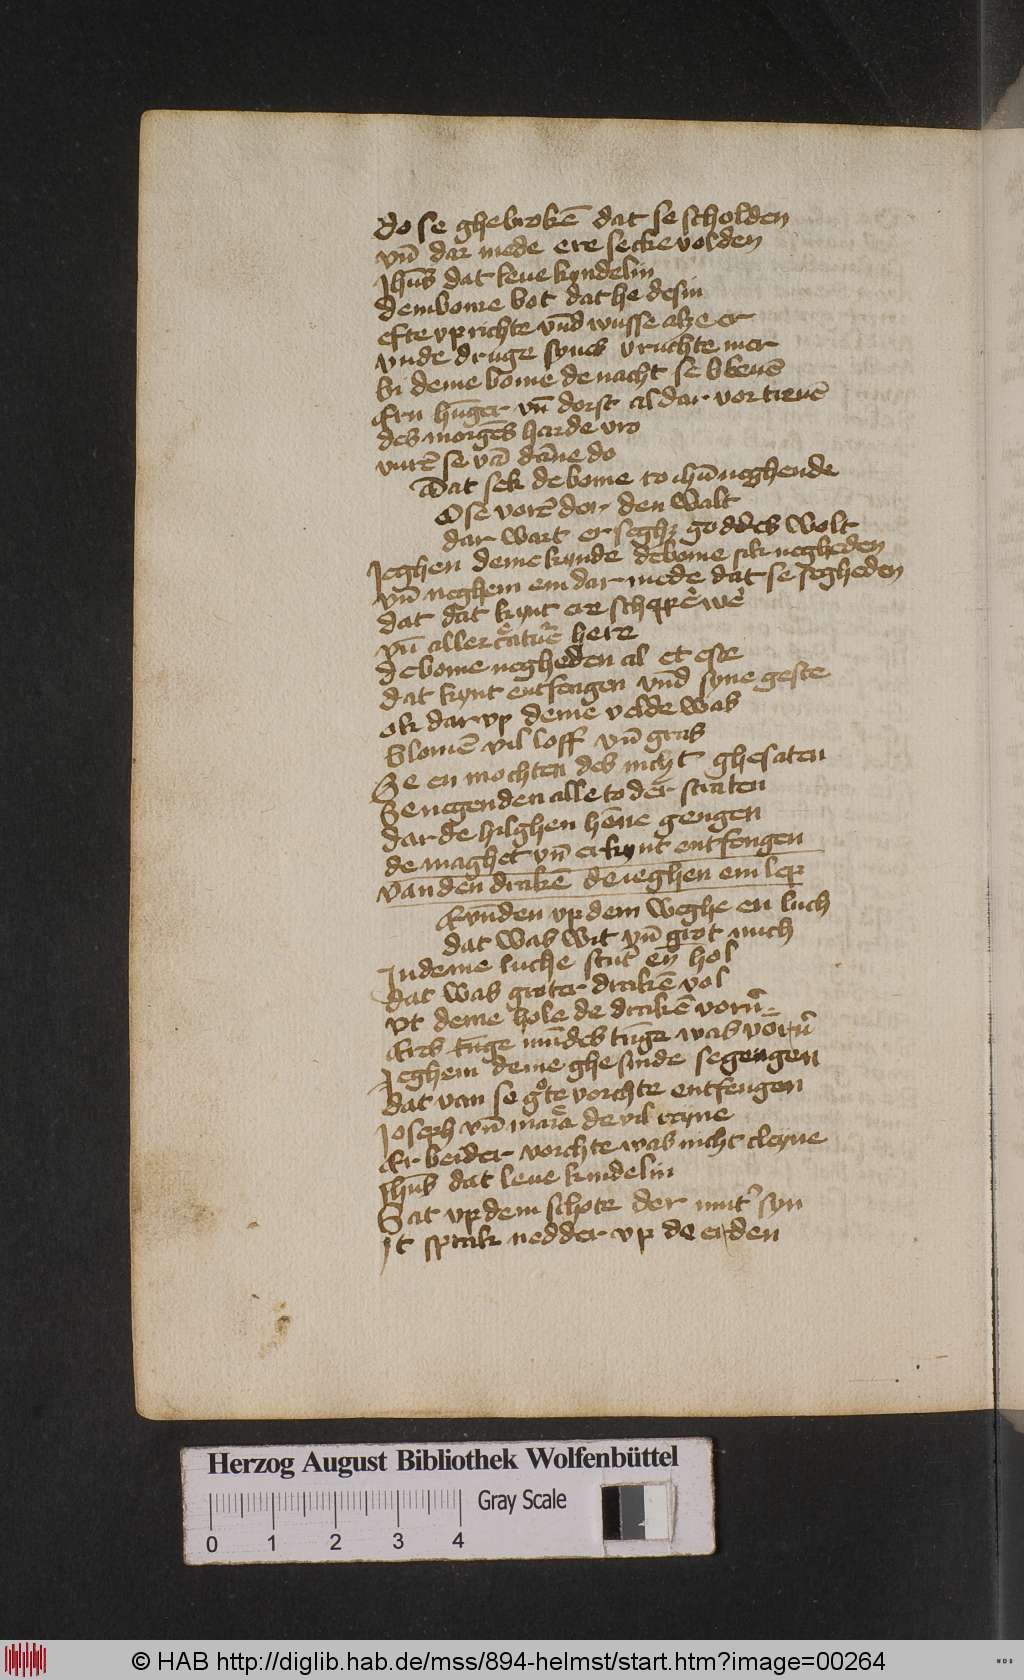 do se ghebrokē dat se scholden
vn̄ dar mede ere secke volden
Jhūs dat leue kyndelin
dem bome bot dat he desin
efte vp richte vn̄d wusse alze er
vnde druge synes vruchte mer
bi deme bome de nacht se bleuē
Ern hūger vn̄ dorst al dar vor treuē
des morgēs harde vro
vurē se vā dāne do
Dat sek de bome to ihū neghende
O se vorē dor den walt
dar wart er seghz goddes wolt
Jeghen deme kynde de bome sik negheden
vn̄ neghem em dar mede dat se segheden
dat dat kynt ere schepere were
vn̄ aller creatuē here
de bome negheden al et este
dat kynt entfengen vn̄d syne geste
ok dar vp deme velde was
blomē vil loff vn̄ gras
Se en mochten des nicht ghesaten
Se negenden alle to der straten
dar de hilghen hēne gengen
de maghet vn̄ er kynt entfengen
van den drakē de ieghen em lep
Evn̄den vp dem weghe en luch
dat was wit vn̄ grot nuch
In deme luche stūt en̄ hol
dat was groter drakē vol
vt deme hole de drakē vorn̄
Ers tn̄ge mn̄des tn̄ge was vorn̄
Jeghem deme ghesinde se gengen
dat van se gote vorchte entfengen
Joseph vn̄ maria de vil reyne
Er beider vorchte was nicht cleyne
Jhūs dat leue kindelin
Sat vp dem schote der mut' syn
It sprak nedder vp de erden
Herzog August Bibliothek Wolfenbüttel
Gray Scale
0 1 2 3 4
© HAB http://diglib.hab.de/mss/894-helmst/start.htm?image=00264